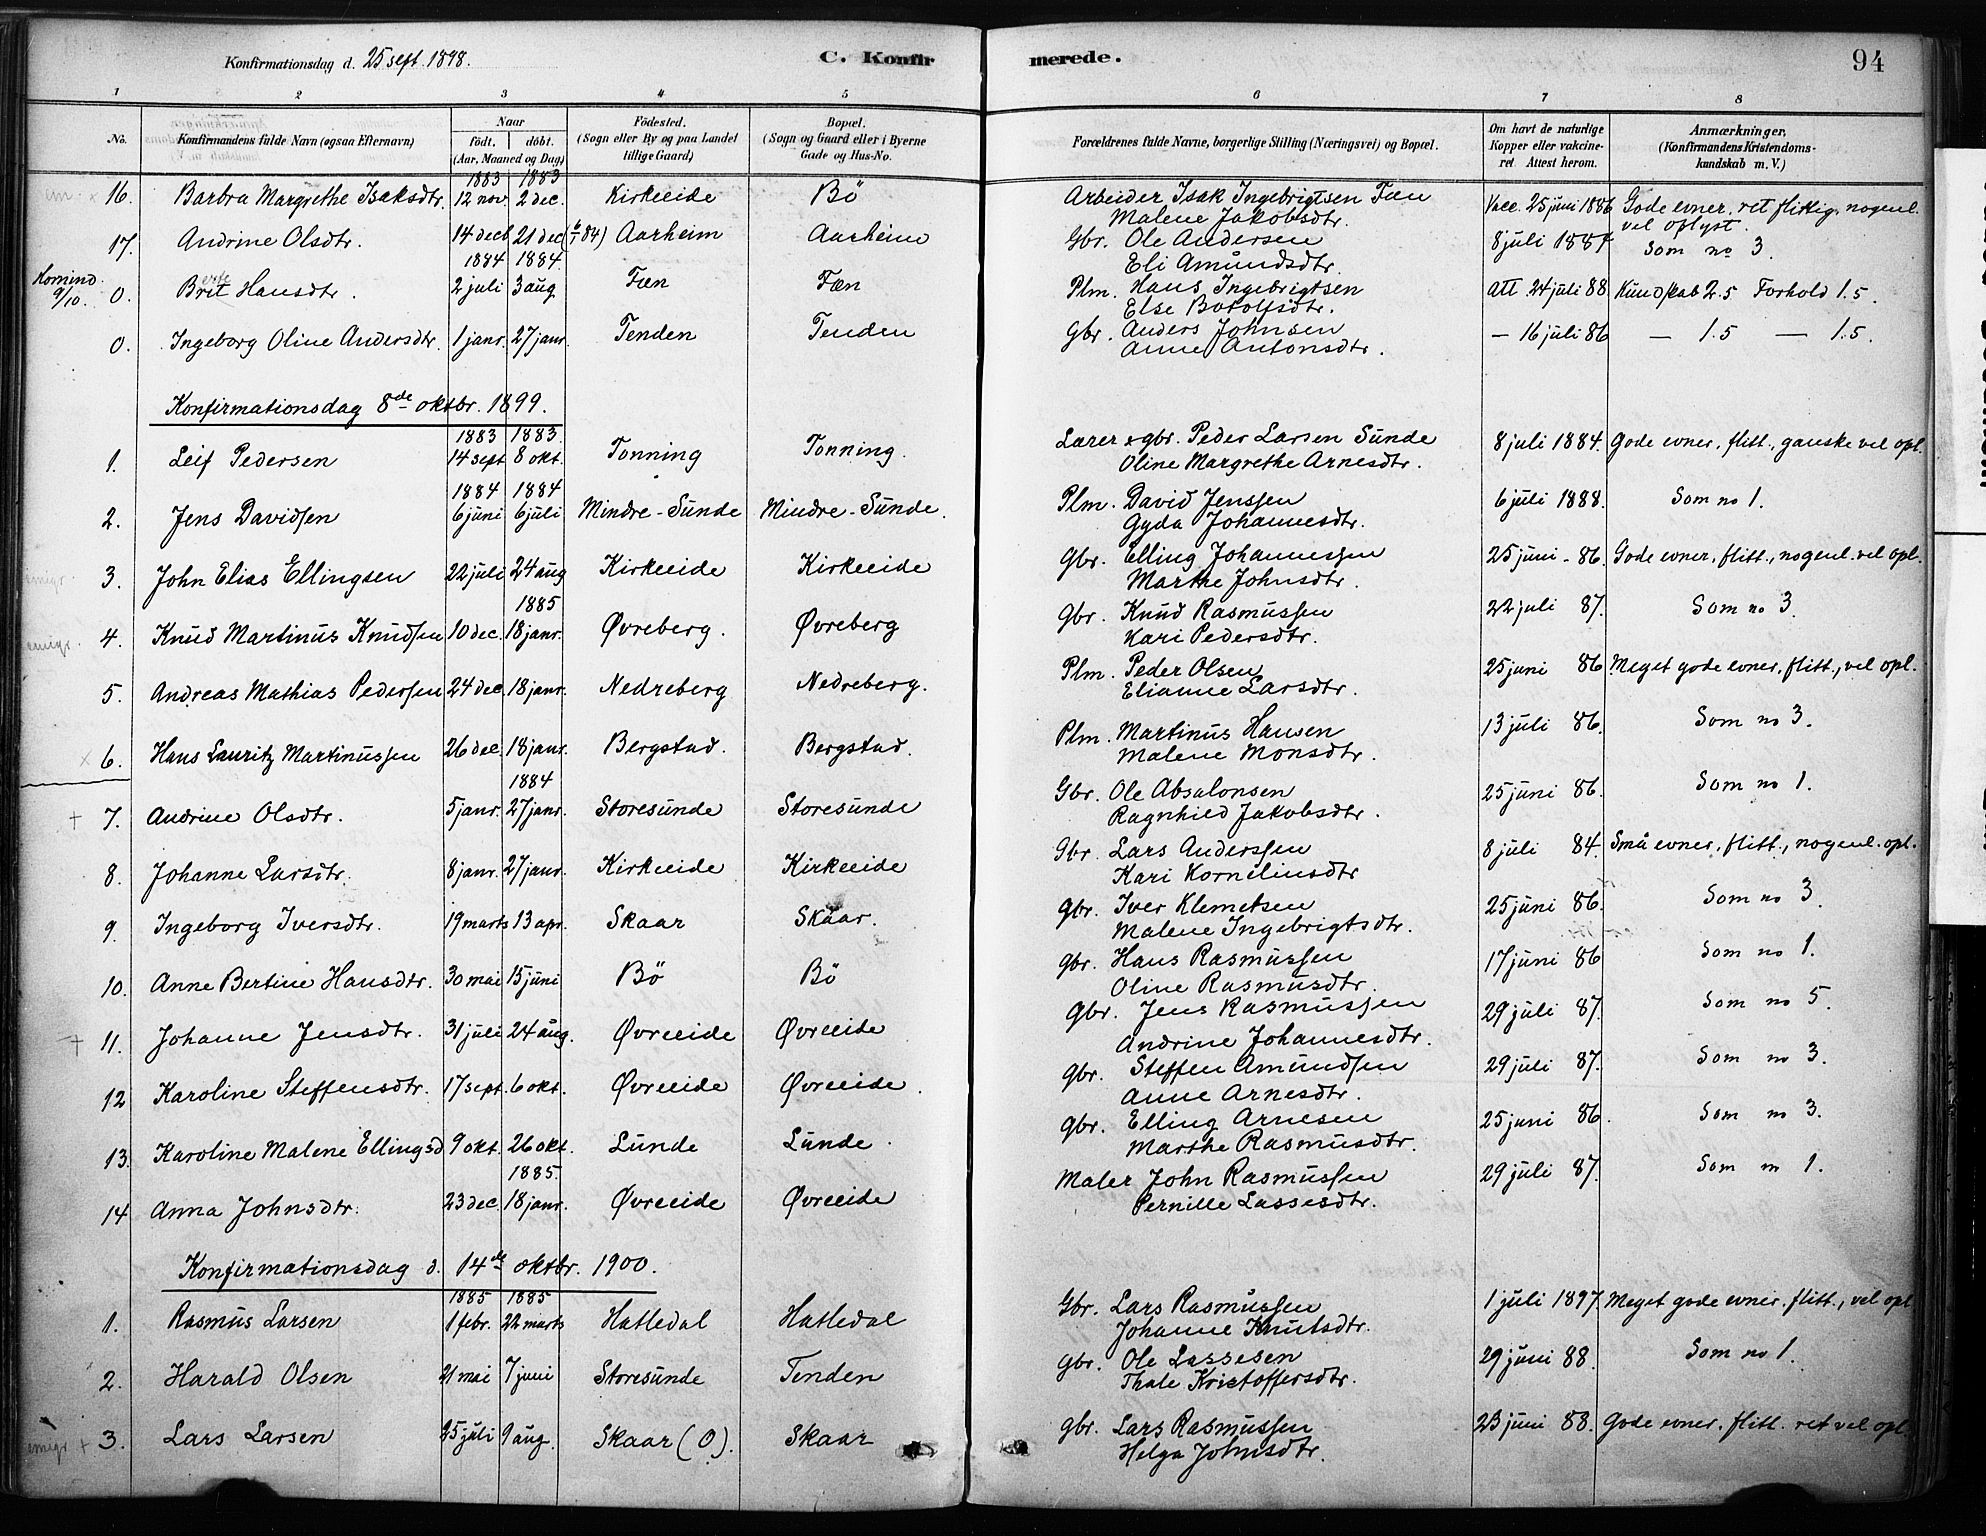 Konfirmationsdag d. 25 sept. 1898.
C. Konfirmerede.
94
1 2 3 4 5 6 7 8
No. Konfirmandens fulde Navn (ogsaa Efternavn) Naar født. døbt. (Aar, Maaned og Dag) Fødested. (Sogn eller By og paa Landet tillige Gaard) Bopæl. (Sogn og Gaard eller i Byerne Gade og Hus-No. Forældrenes fulde Navne, borgerlige Stilling (Næringsvei) og Bopæl. Om havt de naturlige Kopper eller vakcineret. Attest herom. Anmærkninger, (Konfirmandens Kristendomskundskab m. V.)
1883 1883
16. Barbra Margrethe Isaksdtr. 12 nov. 2 dec. Kirkeeide Bö Arbeider Isak Ingebrigtsen Fæn Vacc. 25 juni 1886 Gode evner, ret flittig, nogenl.
Malene Jakobsdtr. vel oplyst.
17. Andrine Olsdtr. 14 decb 21 dec (6/1 84) Aarheim Aarheim Gbr. Ole Andersen 8 juli 1887 Som no 3.
1884 1884. Eli Amundsdtr.
Homind. 9/10. 0. Brit Hansdtr. 2 juli 3 aug Fæn Fæn Plm. Hans Ingebrigtsen att. 24 juli 88 Kundskab 2.5 Forhold 1.5.
Else Botolfsdtr.
0. Ingeborg Oline Andersdtr. 1 janr. 27 janr. Tenden Tenden Gbr. Anders Johnsen — 16 juli 86 — 1.5 — 1.5.
Anne Antonsdtr.
Konfirmationsdag 8de oktbr. 1899.
1883 1883.
1. Leif Pedersen 14 sept 8 okt. Tonning Tonning. Lærer & gbr. Peder Larsen Sunde 8 juli 1884. Gode evner, flitt., ganske vel opl.
Oline Margrethe Arnesdtr.
1884 1884
2. Jens Davidsen 6 juni 6 juli Mindre-Sunde Mindre-Sunde. Plm. David Jenssen 6 juli 1888. Som no 1.
Gyda Johannesdtr.
emigr. 3. John Elias Ellingsen 22 juli 24 aug Kirkeeide Kirkeeide Gbr. Elling Johannessen 25 juni - 86. Gode evner, flitt., nogenl. vel opl.
1885 Marthe Johnsdtr.
emigr. 4. Knud Martinus Knudsen 10 dec. 18 janr. Øvreberg. Øvreberg Gbr. Knud Rasmussen 22 juli 87. Som no 3.
Kari Pedersdtr.
5. Andreas Mathias Pedersen 24 dec. 18 janr. Nedreberg Nedreberg. Plm. Peder Olsen 25 juni 86 Meget gode evner, flitt., vel opl.
Elianne Larsdtr.
x 6. Hans Lauritz Martinussen 26 dec. 18 janr. Bergstad. Bergstad. Plm. Martinus Hansen 13 juli 86. Som no 3.
1884 Malene Monsdtr.
+ 7. Andrine Olsdtr. 5 janr. 27 janr. Storesunde Storesunde Gbr. Ole Absalonsen 25 juni 86. Som no 1.
Ragnhild Jakobsdtr.
8. Johanne Larsdtr. 8 janr. 27 janr. Kirkeeide Kirkeeide Gbr. Lars Anderssen 8 juli 84. Små evner, flitt., nogenl. opl.
Kari Korneliusdtr
9. Ingeborg Iversdtr. 19 marts 13 apr. Skaar Skaar. gbr. Iver Klemetsen 25 juni 86. Som no 3.
Malene Ingebrigtsdtr.
10. Anne Bertine Hansdtr. 30 mai 15 juni Bö Bö gbr. Hans Rasmussen 17 juni 86 Som no 1.
Oline Rasmusdtr.
+ 11. Johanne Jensdtr. 31 juli 24 aug. Øvreeide Øvreeide gbr. Jens Rasmussen 29 juli 87. Som no 5.
Andrine Johannesdtr.
12 Karoline Steffensdtr. 17 sept. 6 okt. Øvreeide Øvreeide gbr. Steffen Amundsen 29 juli 87. Som no 3.
Anne Arnesdtr.
13. Karoline Malene Ellingsd 9 okt. 26 okt. Lunde Lunde. gbr. Elling Arnesen 25 juni 86. Som no 3.
1885. Marthe Rasmusdtr.
14 Anna Johnsdtr. 23 dec. 18 janr. Øvreeide Øvreeide Maler John Rasmussen 29 juli 87. Som no 1.
Pernille Lassesdtr.
Konfirmationsdag d. 14de oktbr. 1900.
1885 1885
1. Rasmus Larsen 1 febr. 22 marts Hatledal Hatledal Gbr. Lars Rasmussen 1 juli 1897. Meget gode evner, flitt., vel opl
Johanne Knutsdtr.
2. Harald Olsen 21 mai 7 juni Storesunde Tenden gbr. Ole Lassesen 29 juni 88. Som no 1.
Thale Kristoffersdtr.
emigr + 3. Lars Larsen 25 juli 9 aug. Skaar (O). Skaar gbr. Lars Rasmussen 23 juni 88. Gode evner, flitt. ret vel opl.
Helga Johnsdtr.